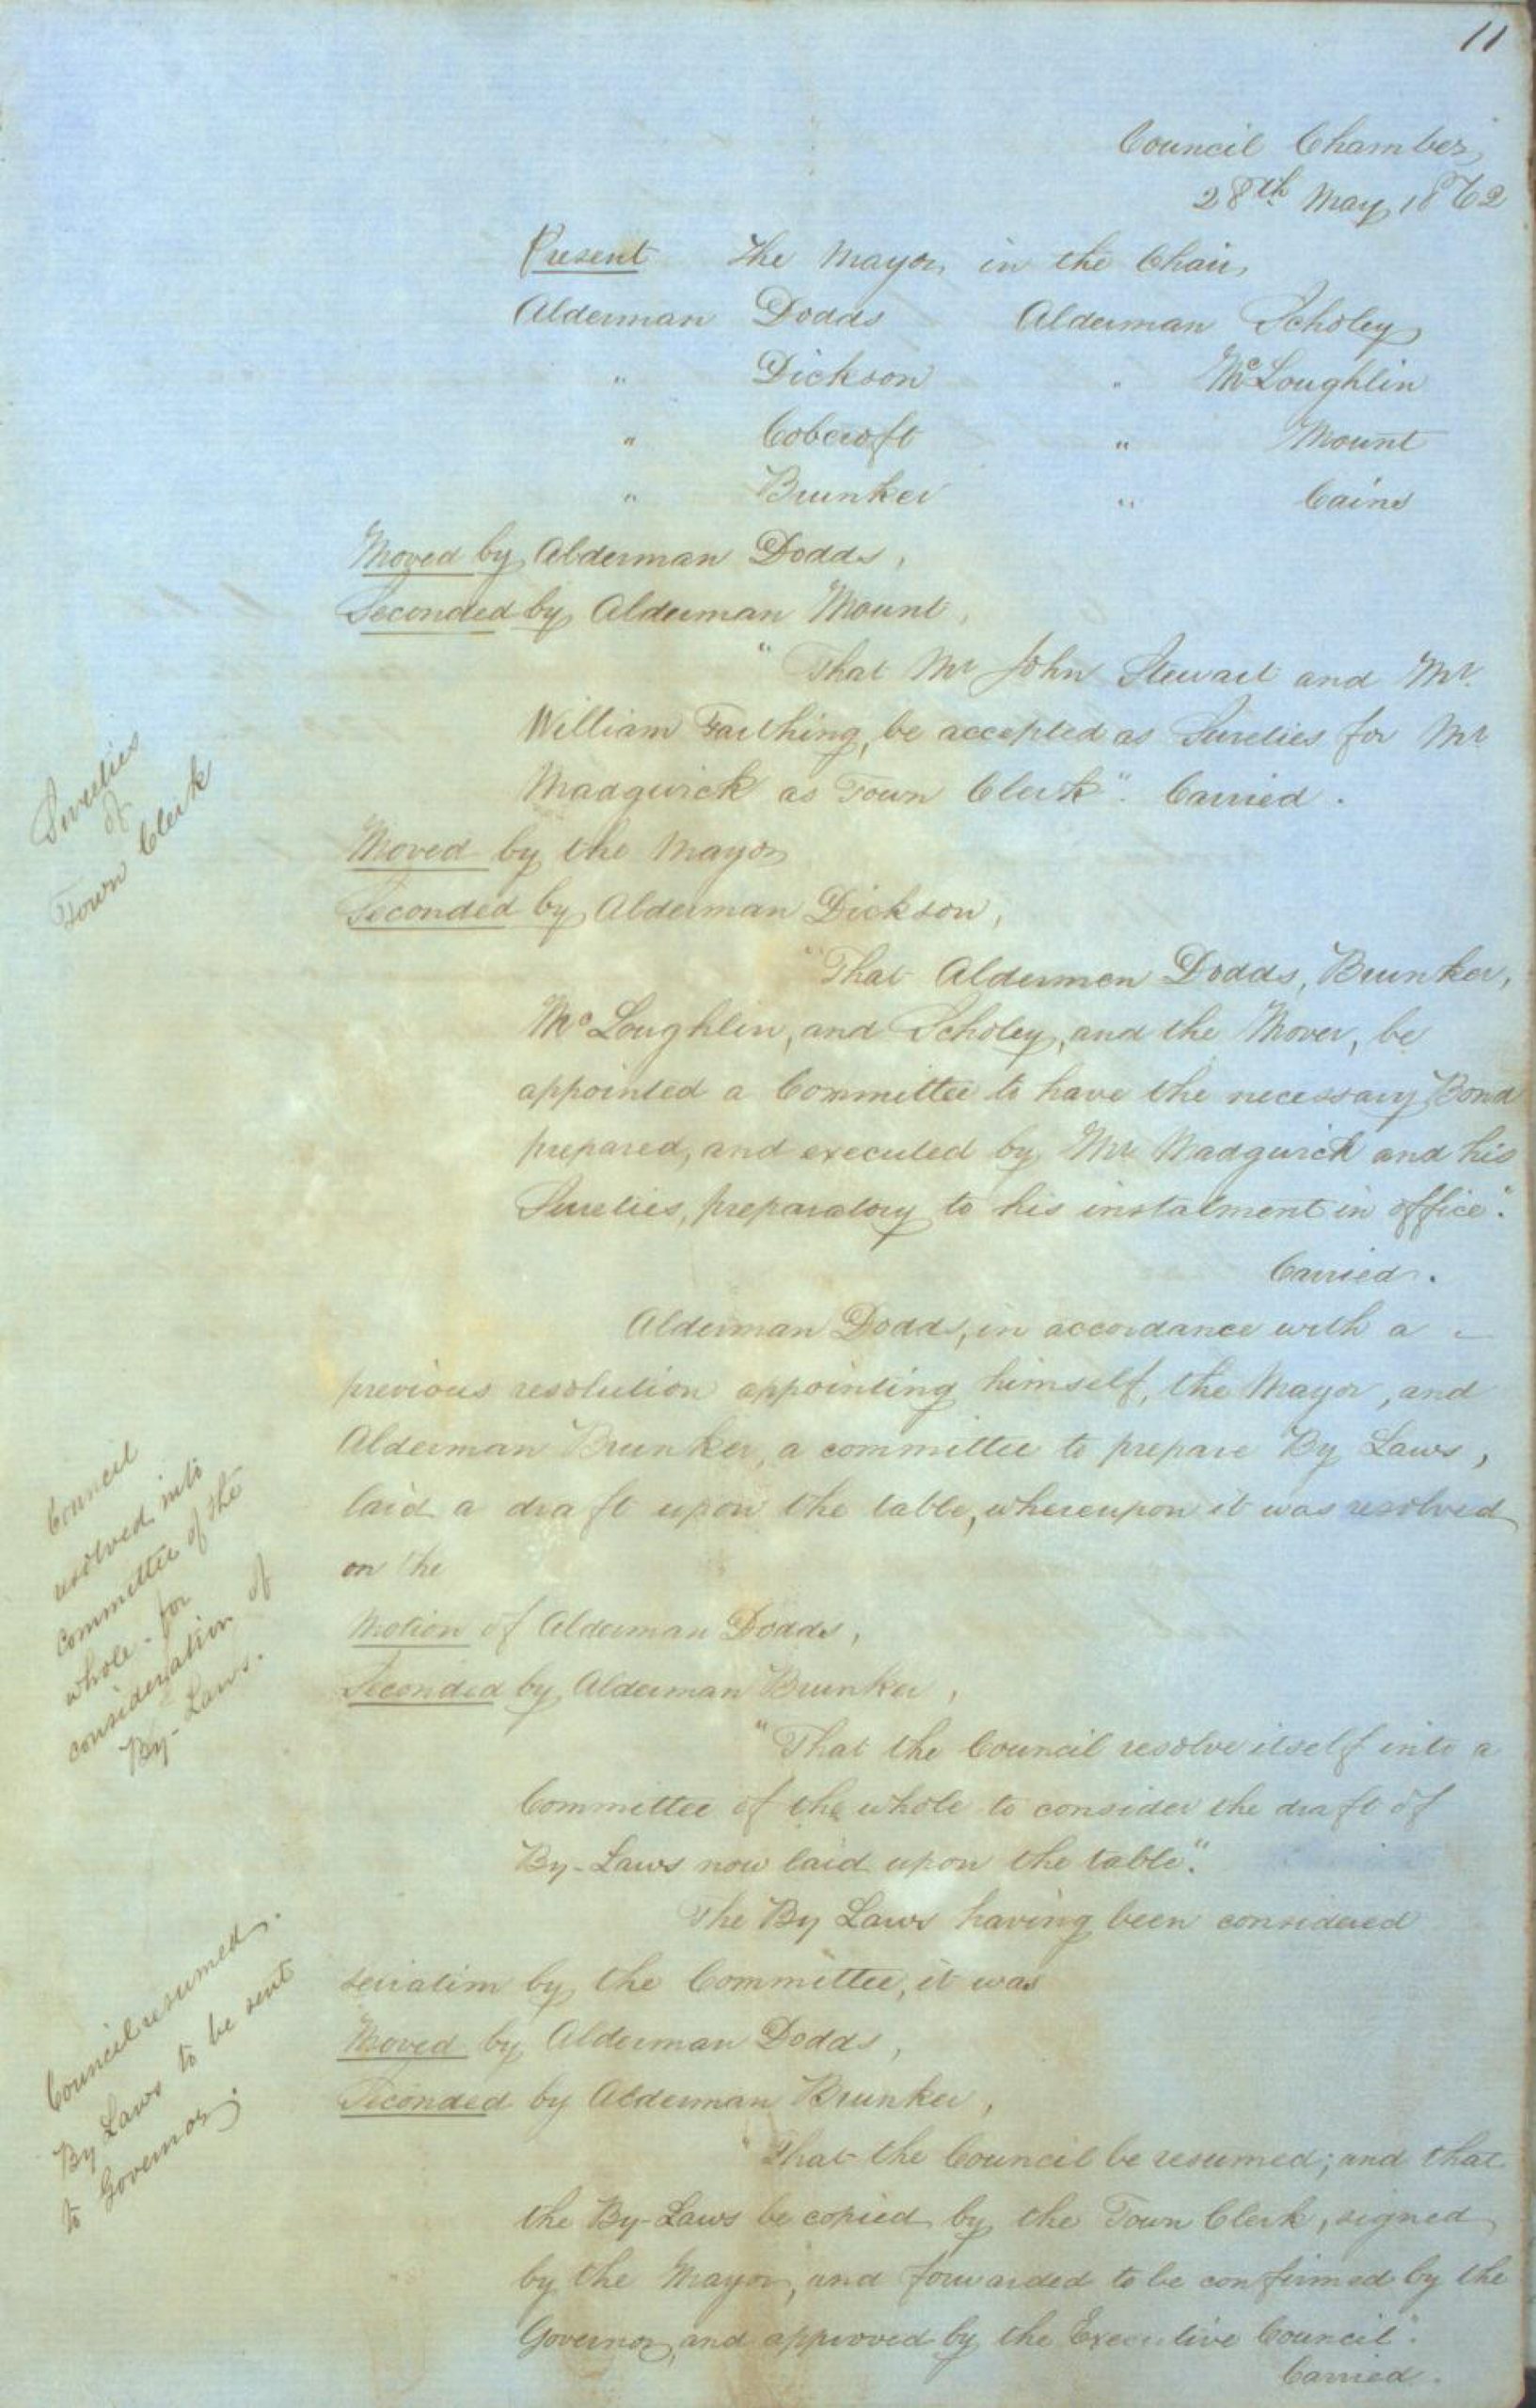 11
Council Chamber,
28th May, 1862
Present The Mayor, in the Chair,
Alderman Dodds Alderman Scholey
" Dickson " McLoughlin
" Cobcroft " Mount
" Brunker " Cains
Moved by Alderman Dodds,
Seconded by Alderman Mount,
"That Mr John Stewart and Mr.
William Farthing, be accepted as Sureties for Mr
Madgwick as Town Clerk". Carried.
Sureties
of
Town Clerk
Moved by the Mayor
Seconded by Alderman Dickson,
"That Aldermen Dodds, Brunker,
McLoughlin, and Scholey, and the Mover, be
appointed a Committee to have the necessary Bond
prepared, and executed by Mr Madgwick and his
Sureties, preparatory to his instalment in office".
Carried.
Alderman Dodds, in accordance with a -
previous resolution appointing himself, the Mayor, and
Alderman Brunker, a committee to prepare By Laws,
laid a draft upon the table, whereupon it was resolved
on the
Council
resolved into
committee of the
whole - for
consideration of
By-Laws.
Motion of Alderman Dodds,
Seconded by Alderman Brunker,
"That the Council resolve itself into a
Committee of the whole to consider the draft of
By-Laws now laid upon the table".
The By Laws having been considered
seriatim by the Committee, it was
Moved by Alderman Dodds,
Seconded by Alderman Brunker,
Council resumed.
By Laws to be sent
to Governor.
"That the Council be resumed; and that
the By-Laws be copied by the Town Clerk, signed
by the Mayor, and forwarded to be confirmed by the
Governor, and approved by the Executive Council".
Carried.